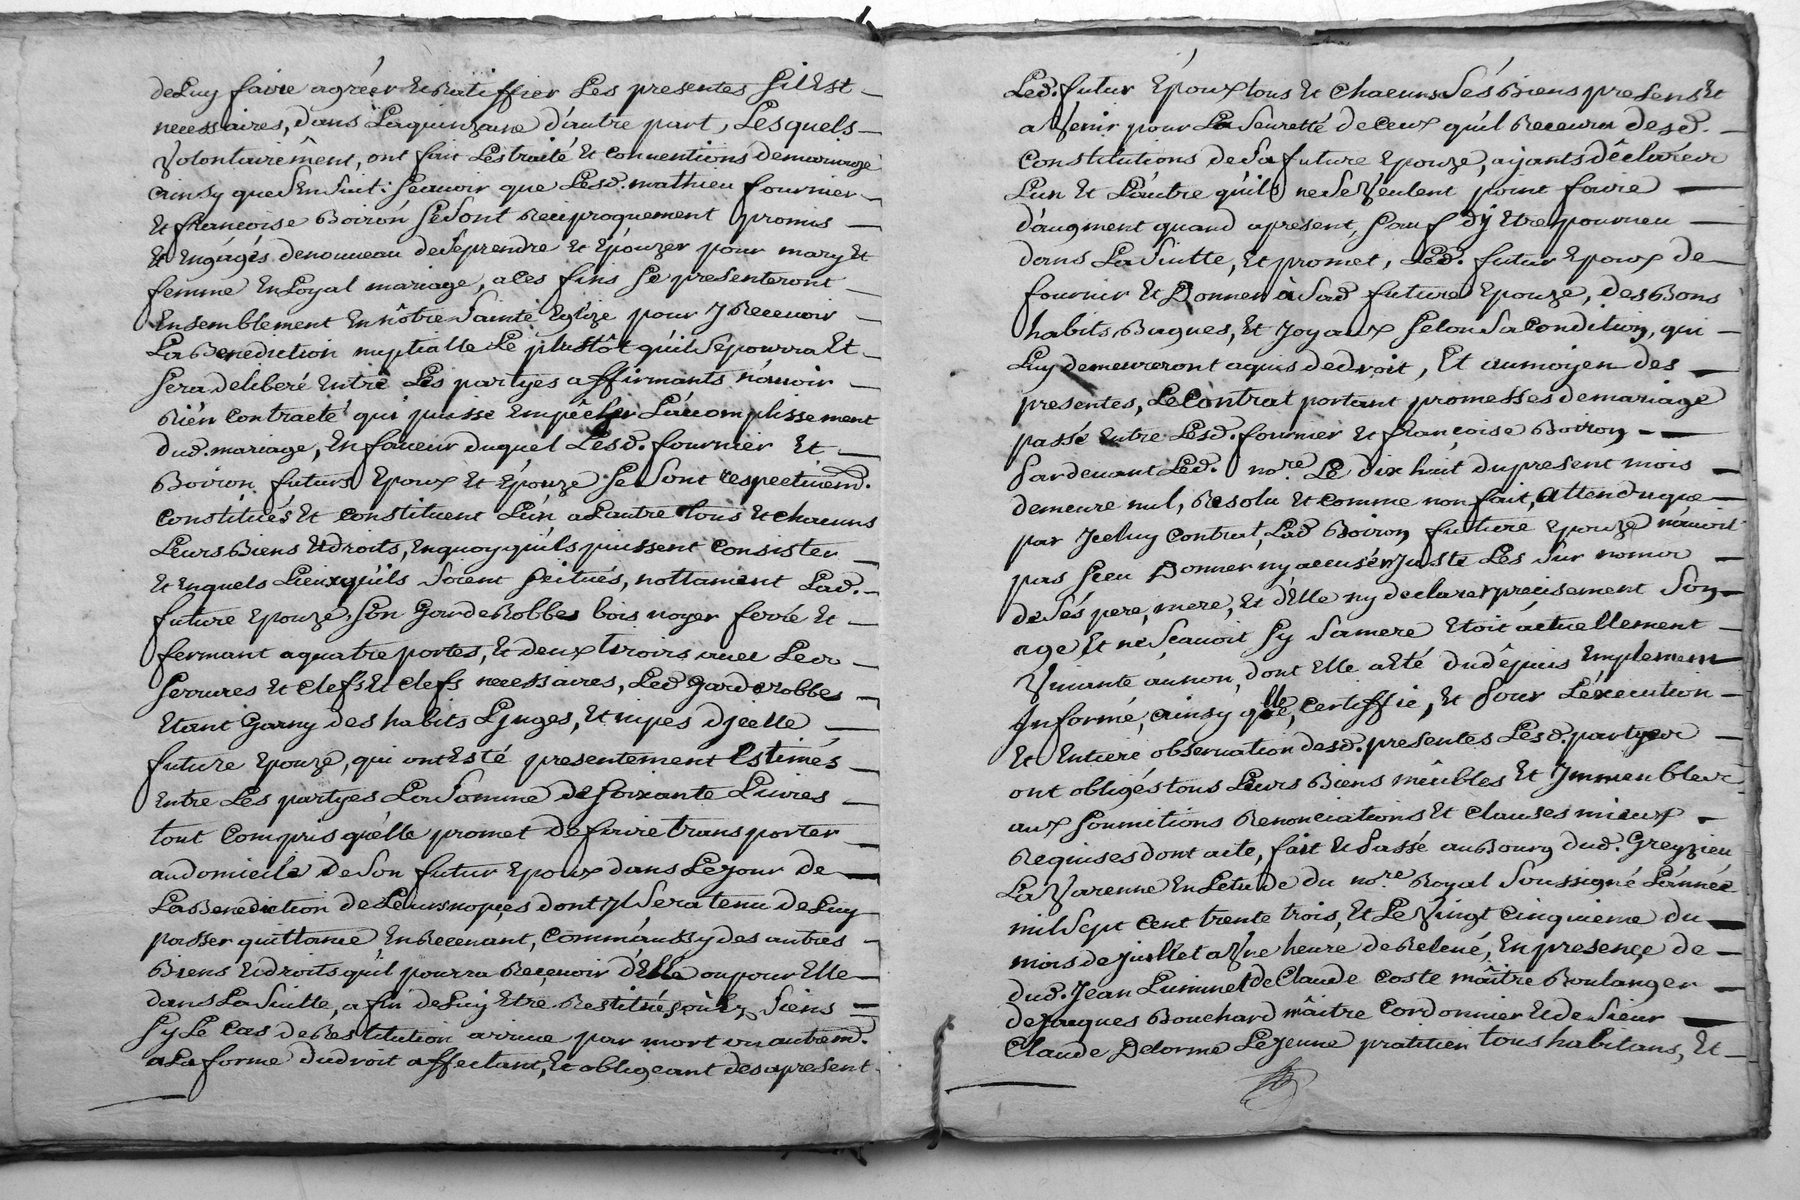 de Luy faire agréer et Ratiffier Les presentes S'il Est
necessaires, dans La quinzaine d'autre part, Lesquels
Volontairemênt, ont fait Les traité Et conventions de mariage
ainsy que s'Ensuit: Scavoir que Lesd. mathieu fournier
Et francoise Boiron se sont Reciproquement promis
Et Engâgés denouveau de se prendre Et Epouzer pour mary Et
femme En Loyal mariage, a Ces fins se presenteront
Ensemblement En nôtre Sainte Eglize pour y Recevoir
La Benediction nuptialle Le plustôt qu'il se pourra Et
sera deliberé Entre Les partyes affirmants n'avoir
Rién contracté qui puisse Empêcher L'acomplissement
dud. mariage, En faveur duquel Lesd. fournier Et
Boiron futurs Epoux Et Epouze se sont respectivemd.
constitués Et constituent L'un a L'autre tous Et chacuns
Leurs Biens Et droits, En quoy qu'ils puissent consister
Et En quels Lieux qu'ils soient scitués, nottament Lad.
future Epouze son Garde Robbes bois noyer ferré Et
fermant a quatre portes, Et deux tiroirs avec Leur
serrures Et clefs Et clefs necessaires, Led Garderobbes
Etant Garny des habits Linges, Et nipes d'jcelle
future Epouze, qui ont Esté presentement Estimés
Entre Les partyes La somme de soixante Livres
tout compris qu'elle promet de faire transporter
au domicile de son futur Epoux dans Le jour de
La Benediction de Leurs nopçes dont jl sera tenu de Luy
passer quittance En Recevant, comm'aussy des autres
Biens Et droits qu'il pourra Reçevoir d'Elle ou pour Elle
dans La suitte, afin de Luy Etre Restitués, où aux siens
sy Le Cas de Restitution arrive par mort ou autremd.
a La forme du droit affectant, Et obligeant des apresent
Led. futur Epoux tous Et chacuns sés Biens presens Et
a Venir pour La seuretté de Ceux qu'il Recevra desd.
constitutions de sa future Epouze, ajants dêclarér
L'un Et L'autre qu'ils ne se Veulent point faire
d'augment quand apresent, sauf d'ÿ Etre pourveu
dans La suitte, Et promet, Led. futur Epoux de
fournir Et Donner à sad future Epouze, des Bons
habits, Bagues, Et Joyaux selon sa condition, qui
Luy demeureront aquis de droit, Et au moyen des
presentes, Le contrat portant promesses de mariage
passé Entre Lesd. fournier Et françoise Boiron
pardevant Led. nore. Le dix huit du present mois
demeure nul, Resolu Et comme non fait, attendu que
par Jceluy contrat, Lad Boiron future Epouze n'avoit
pas sçeu Donner ny accusér juste Les sur nomer
de sés pere, mere, Et d'Elle ny declarer précisement son
age Et ne sçavoit sy sa mere Etoit actuellement
Vivante au non, dont Elle a Eté du dêpuis Emplement
Jnformé, ainsy qu'elle, certiffié, Et pour L'éxecution
Et Entiere observation desd. presentes Lesd. partyer
ont obligés tous Leurs Biens mêubles Et Jmmeubler
aux soumitions Renonciations Et clauses mieux
Requises dont acte, fait Et Passé au Bourg dud. Greyzieu
La Varenne En L'etude du nore. Royal soussigné L'année
mil sept cent trente trois, Et Le Vingt cinquieme du
mois de juillet a Une heure de Relevé, En presençe de
dud. Jean Luminet de Claude Coste maître Boulanger
de Jaques Bouchard mâitre Cordonnier Et de sieur
Claude Delorme Le jeune pratitien tous habitans, Et